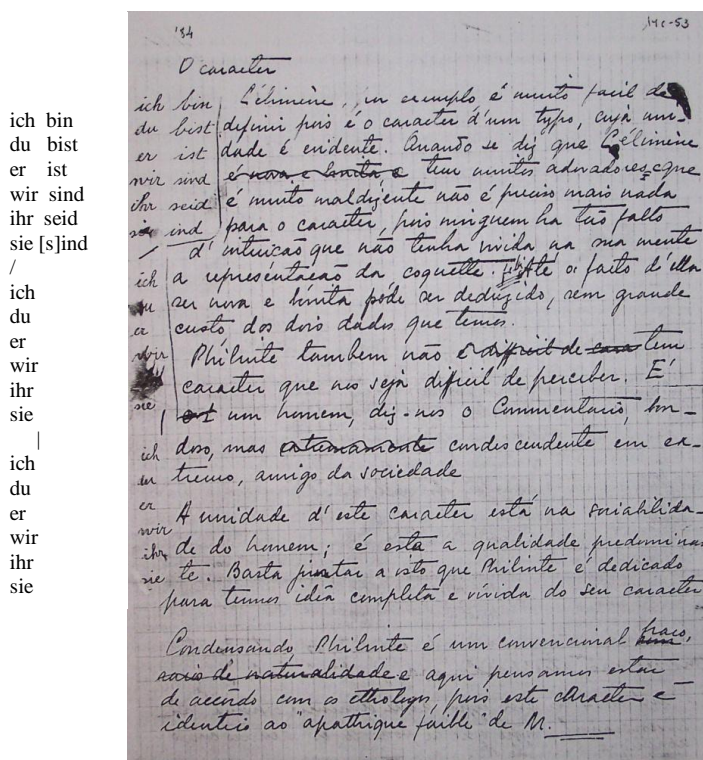 ich bin
du bist
er ist
wir sind
ihr seid
sie [s]ind
/
ich
du
er
wir
ihr
sie
|
ich
du
er
wir
ihr
sie
'34
14c-53
O caracter
ich bin
du bist
er ist
wir sind
ihr seid
sie ind
/
ich
du
er
wir
sie
ich
du
er
wir
ihr
sie
Célimène, por exemplo é muito facil de
definir pois é o caracter d'um typo, cuja uni-
dade é evidente. Quando se diz que Célimène
é nova e bonita e tem muitos adoradores e que
é muito maldizente não é preciso mais nada
para o caracter, pois ninguem ha tão falto
d'intuicão que não tenha vivida na sua mente
a representacão da coquette. Até o facto d'ella
ser nova e bonita póde ser deduzido, sem grande
custo dos dois dados que temos.
Philinte tambem não é difficil de cara tem
caracter que nos seja dificil de perceber. É
um homem, diz-nos o Commentario, bon-
doso, mas extremamente condescendente em ex-
tremo, amigo da sociedade
A unidade d'este caracter está na sociabilida-
de do homem; é esta a qualidade predominan
te. Basta juntar a isto que Philinte é dedicado
para termos idéa completa e vívida do seu caracter
Condensando, Philinte é um convencional fraco,
de naturalidade e aqui pensamos estar
de accordo com os ethologos, pois este caracter é
identico ao "apathique faible" de M.